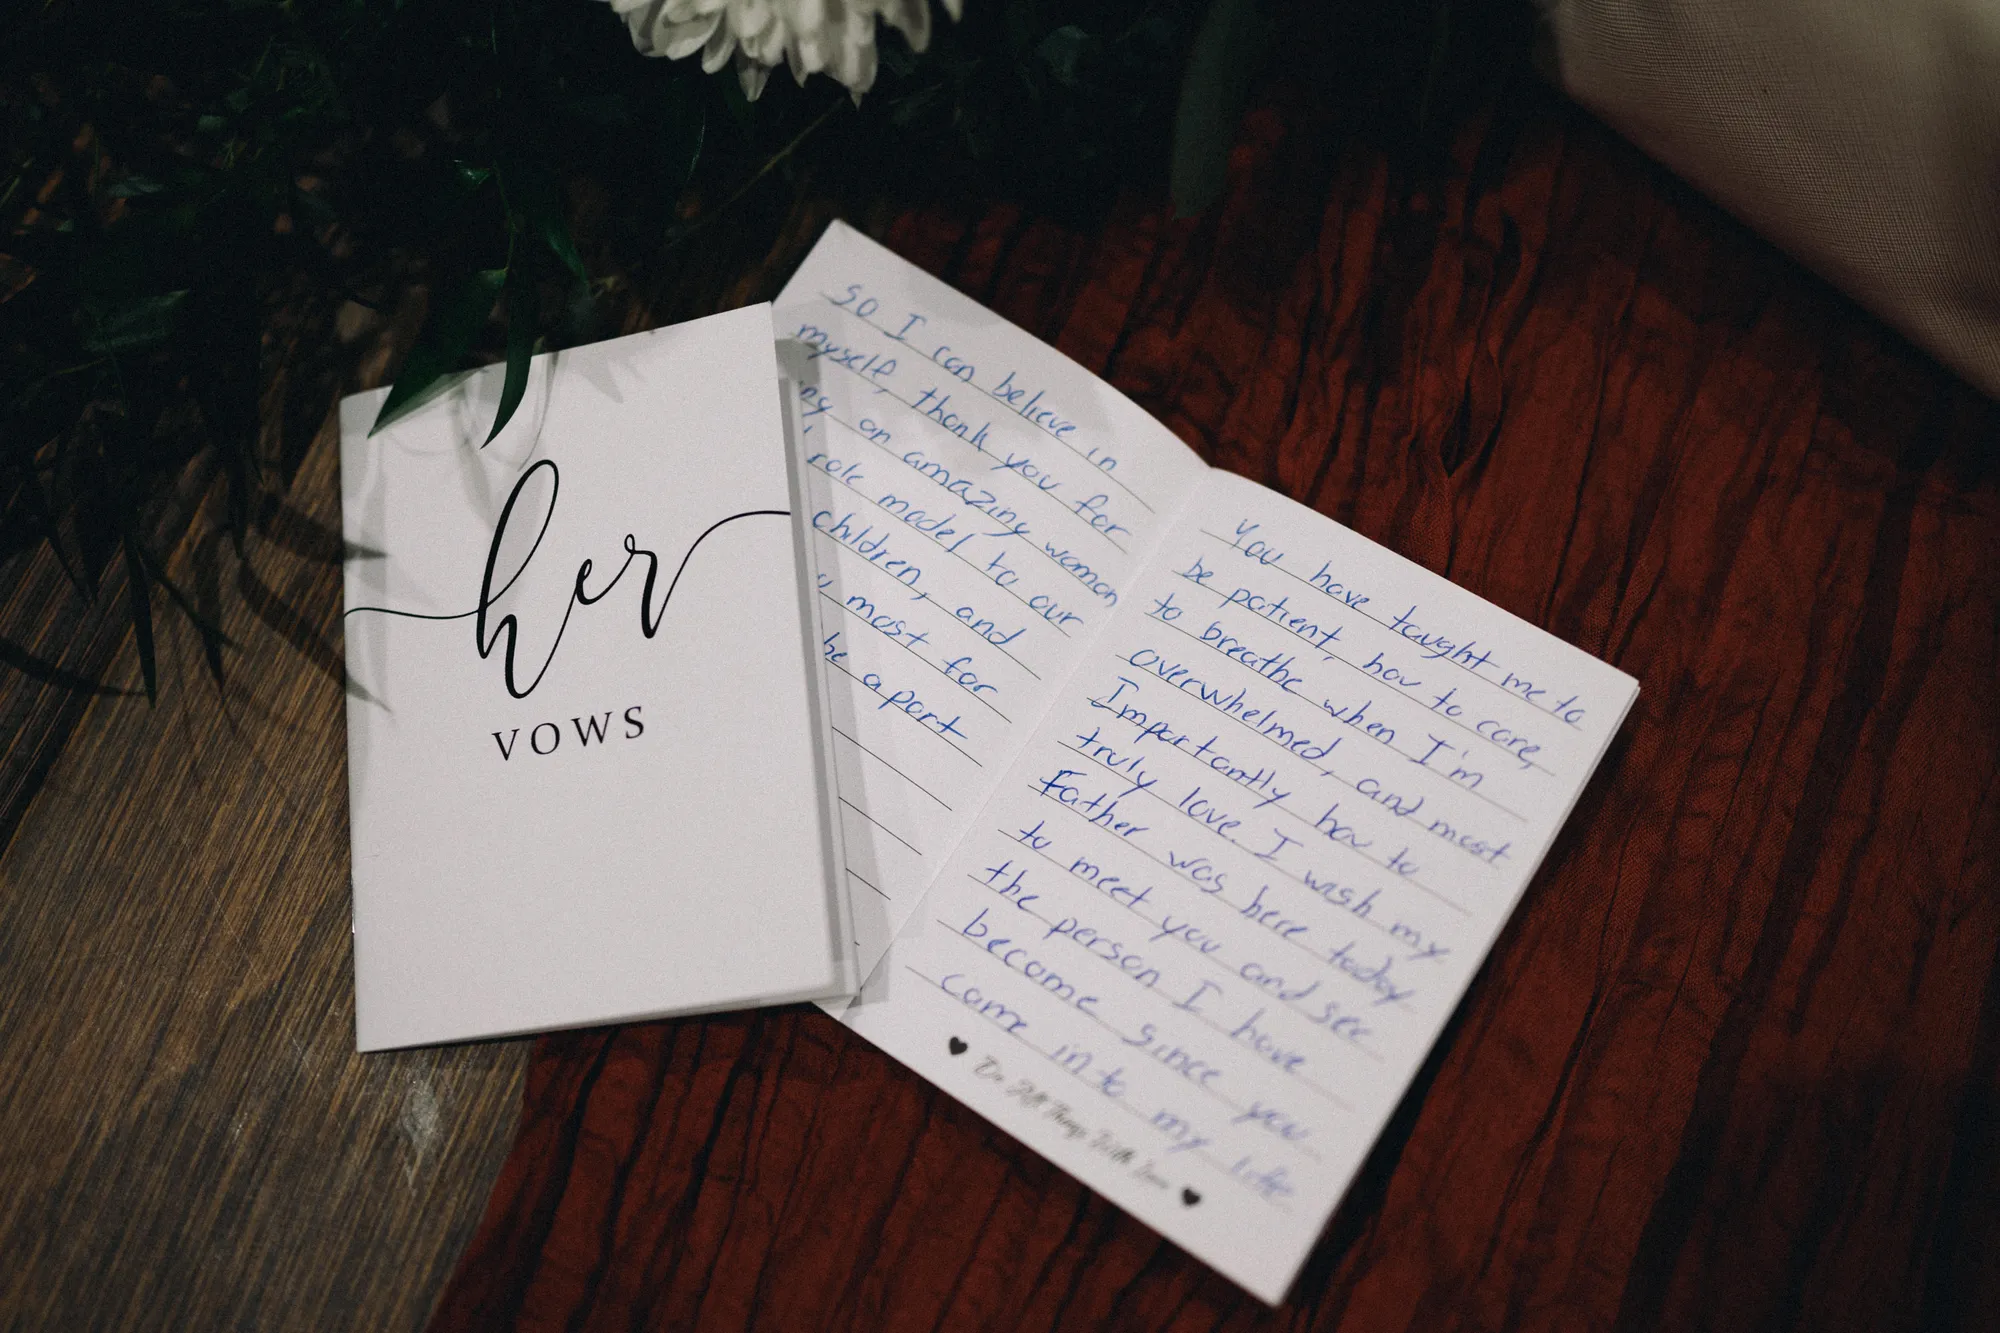 her
VOWS
so I can believe in
myself, thank you for
an amazing woman
role model to our
children, and
most for
be apart
You have taught me to
be patient, how to care,
to breathe when I'm
overwhelmed, and most
Importantly how to
truly love. I wish my
Father was here today
to meet you and see
the person I have
become since you
came into my life
Do All Things With Love